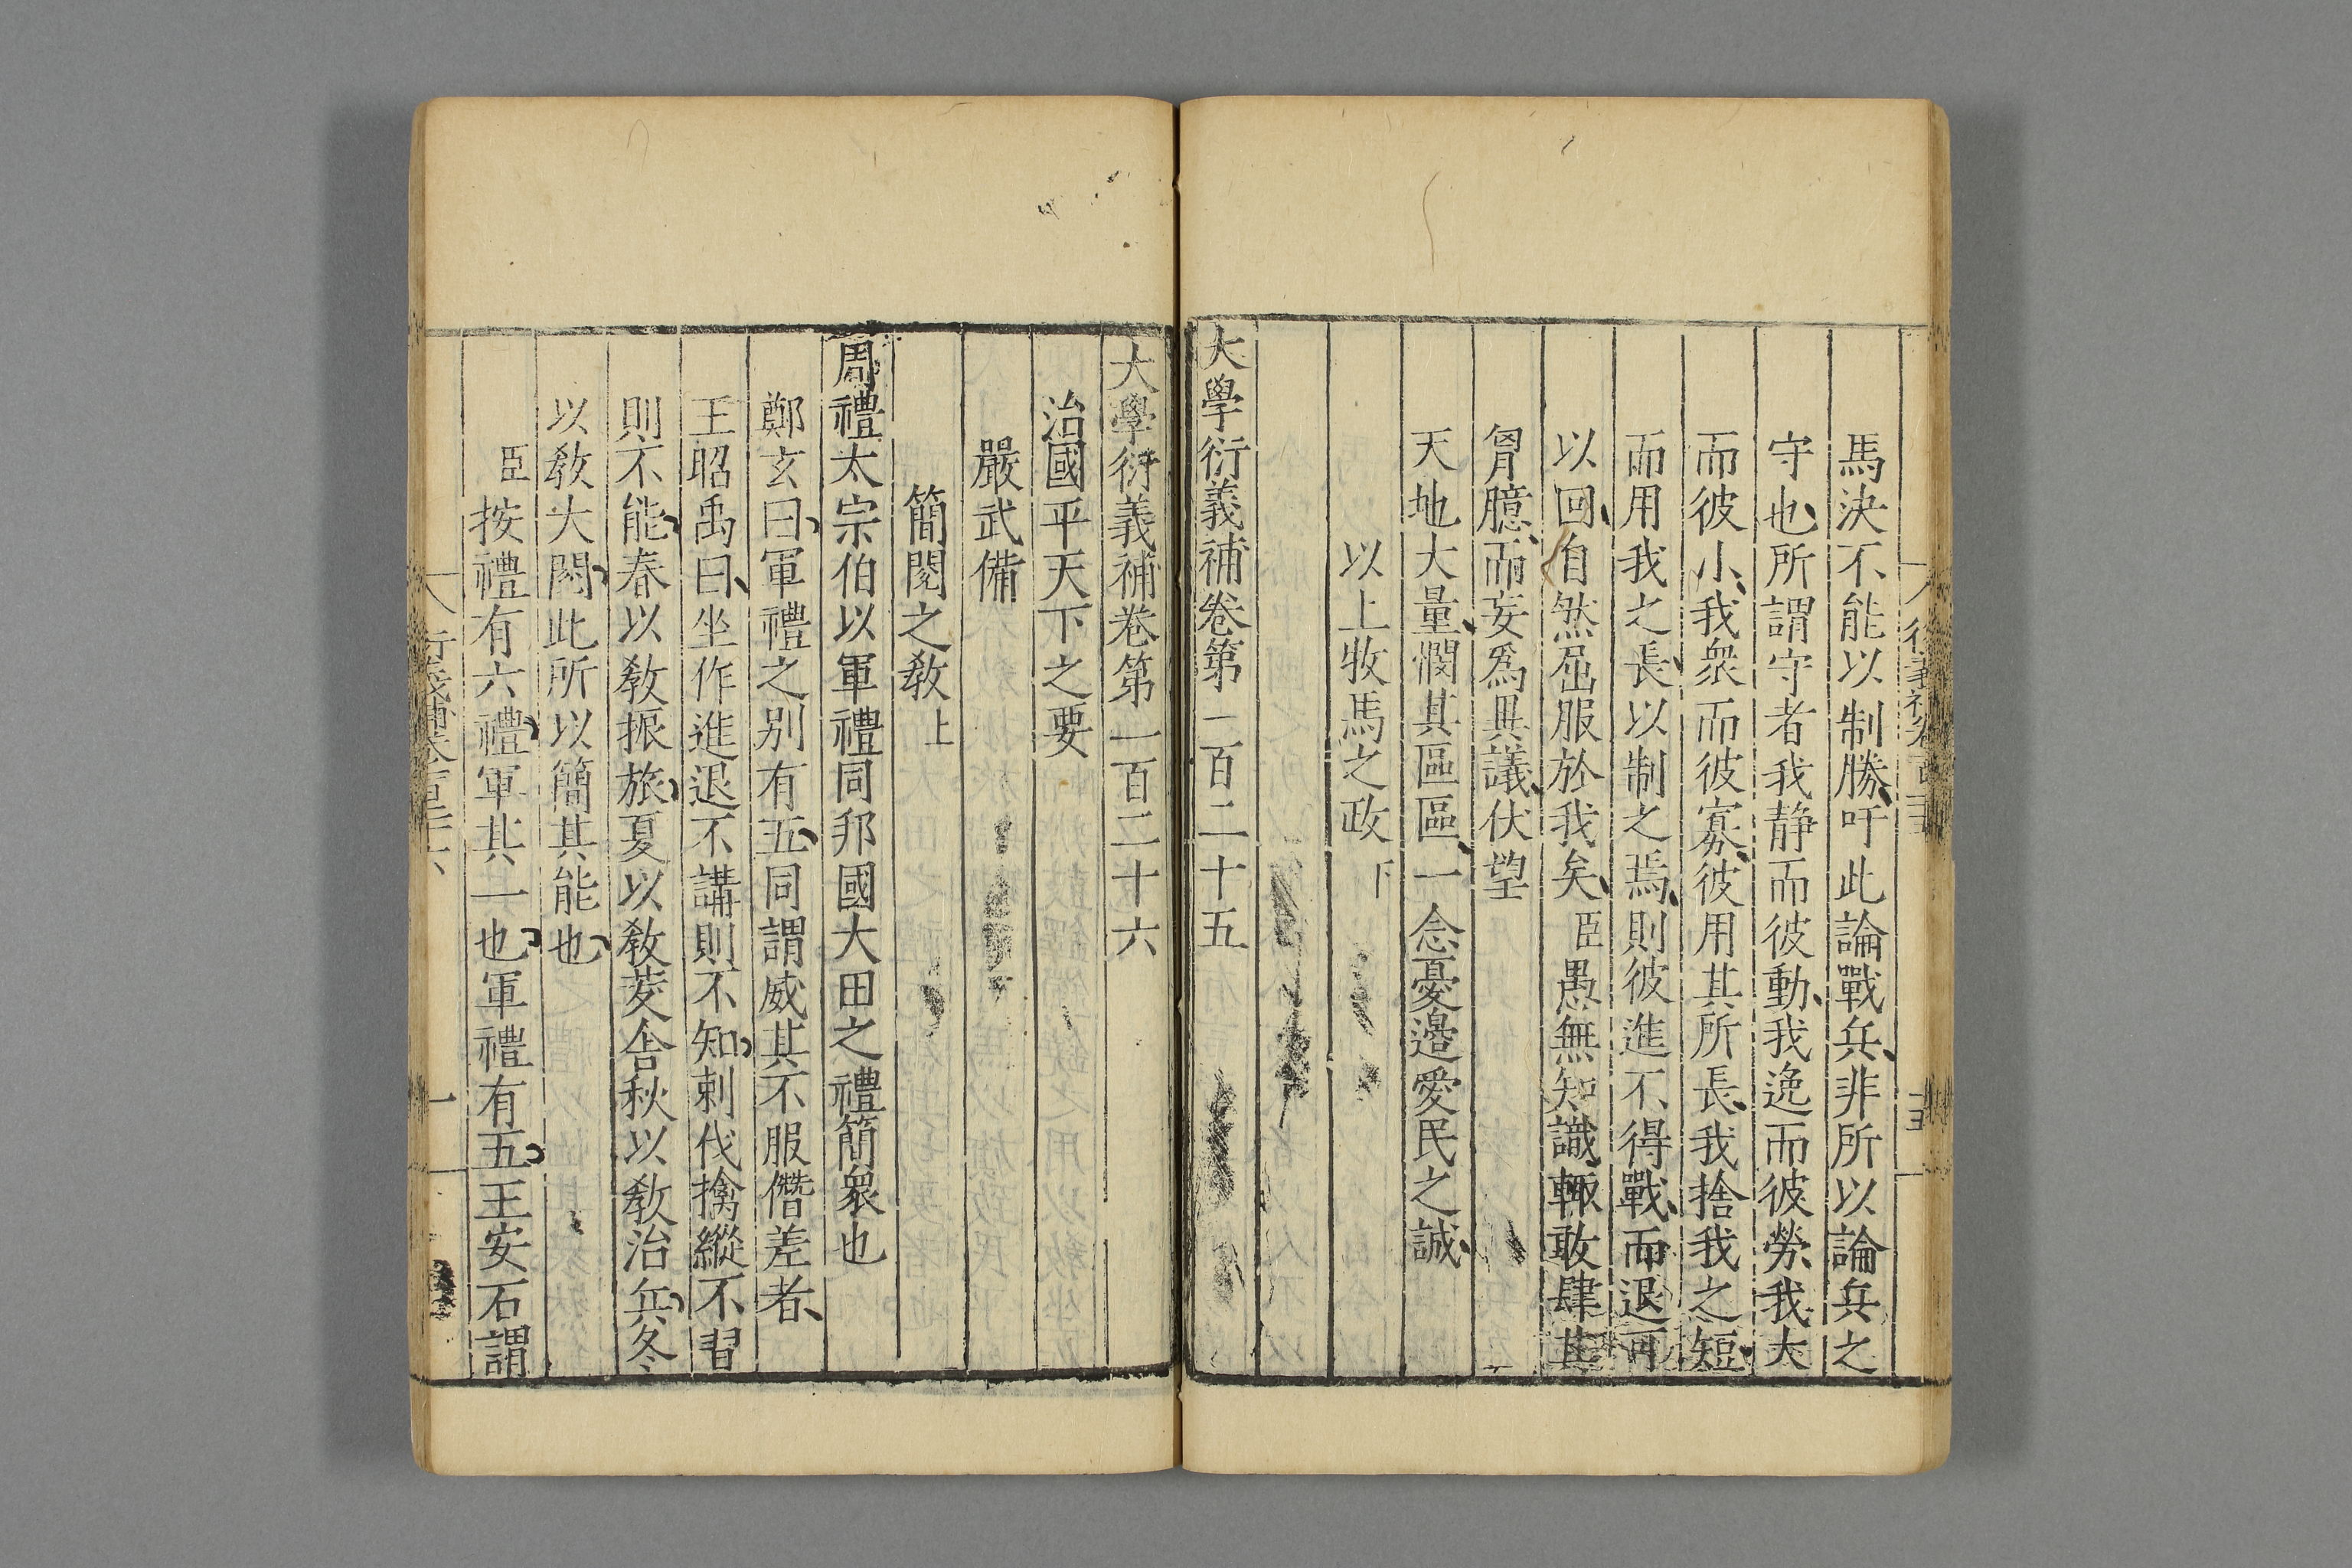 馬決不能以制勝吁此論戰兵非所以論兵之
守也所謂守者我静而彼動我逸而彼勞我大
而彼小我衆而彼寡彼用其所長我捨我之短
而用我之長以制之焉則彼進不得戰而退可
以回自然屈服於我矣臣愚無知識輙敢肆其
胷臆而妄爲異議伏望
天地大量憫其區區一念憂邉愛民之誠
以上牧馬之政下
大學衍義補卷第一百二十五
大學衍義補卷第一百二十六
治國平天下之要
嚴武備
簡閱之敎上
周禮太宗伯以軍禮同邦國大田之禮簡衆也
鄭玄曰軍禮之别有五同謂威其不服僭差者
王昭禹曰坐作進退不講則不知刺伐擒縱不習
則不能春以敎振旅夏以敎茇舍秋以敎治兵冬
以敎大閱此所以簡其能也
臣按禮有六禮軍其一也軍禮有五王安石謂